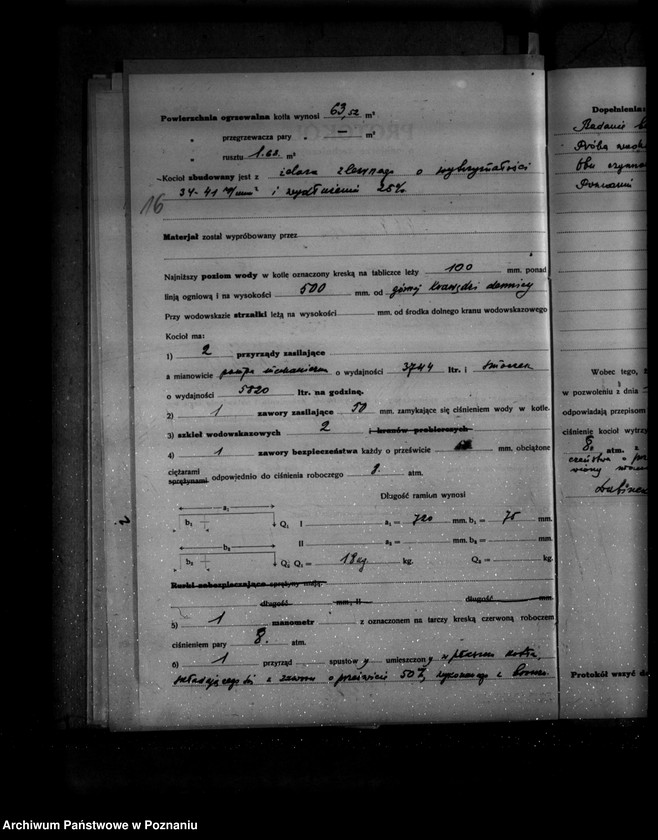 Powierzchnia ogrzewalna kotła wynosi 63,52 m²
„ przegrzewacza pary „ — m²
„ rusztu 1.62 m²
Kocioł zbudowany jest z żelaza zlewnego o wytrzymałości
34-41 kg/mm² i wydłużeniu 25%
16
Materjał został wypróbowany przez
Najniższy poziom wody w kotle oznaczony kreską na tabliczce leży 100 mm. ponad
linją ogniową i na wysokości 500 mm. od górnej krawędzi dennicy
Przy wodowskazie strzałki leżą na wysokości mm. od środka dolnego kranu wodowskazowego
Kocioł ma:
1) 2 przyrządy zasilające
a mianowicie pompa mechaniczna o wydajności 3744 ltr. i
o wydajności 5820 ltr. na godzinę.
2) 1 zawory zasilające 50 mm. zamykające się ciśnieniem wody w kotle.
3) szkieł wodowskazowych 2 i kranów probierczych
4) 1 zawory bezpieczeństwa każdy o prześwicie mm. obciążone
ciężarami
sprężynami odpowiednio do ciśnienia roboczego 8. atm.
Długość ramiun wynosi
a₁
b₁ Q₁ I a₁ = 720 mm. b₁ = 75 mm.
a₂
II a₂ = mm. b₂ = mm.
b₂ Q₂ Q₁ = kg. Q₂ = kg.
Rurki zabezpieczające sprężyny mają:
długość mm, II długość mm.
5) 1 manometr z oznaczonem na tarczy kreską czerwoną roboczem
ciśnieniem pary 8. atm.
6) 1 przyrząd spustowy umieszczony w płaszczu kotła,
składającego się z zaworu o prześwicie 50 wykonanego z
Dopełnienia:
Badanie
Próba
Wobec tego,
w pozwoleniu z dnia
odpowiadają przepisom
ciśnienie kocioł wytrzy
8. atm. z
Protokół wszyć do
Archiwum Państwowe w Poznaniu